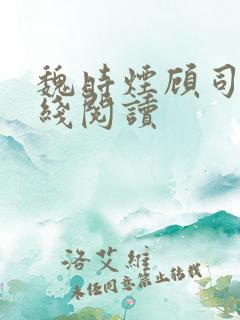 魏時煙顾司
綫閱讀
洛艾維
未经同意禁止转载